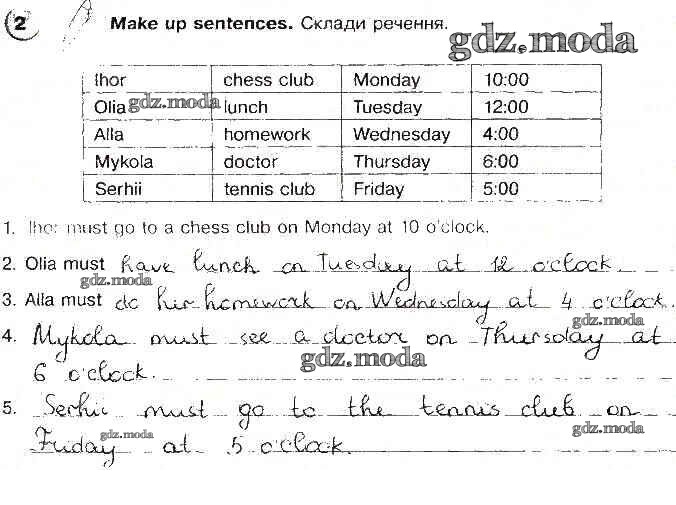 2 Make up sentences. Склади речення.
gdz.moda
Ihor chess club Monday 10:00
Olia gdz.moda lunch Tuesday 12:00
Alla homework Wednesday 4:00
Mykola doctor Thursday 6:00
Serhii tennis club Friday 5:00
1. Ihor must go to a chess club on Monday at 10 o'clock.
2. Olia must have lunch on Tuesday at 12 o'clock.
gdz.moda
3. Alla must do her homework on Wednesday at 4 o'clock.
gdz.moda
4. Mykola must see a doctor on Thursday at
gdz.moda
6 o'clock.
5. Serhii must go to the tennis club on
gdz.moda gdz.moda
Friday at 5 o'clock.